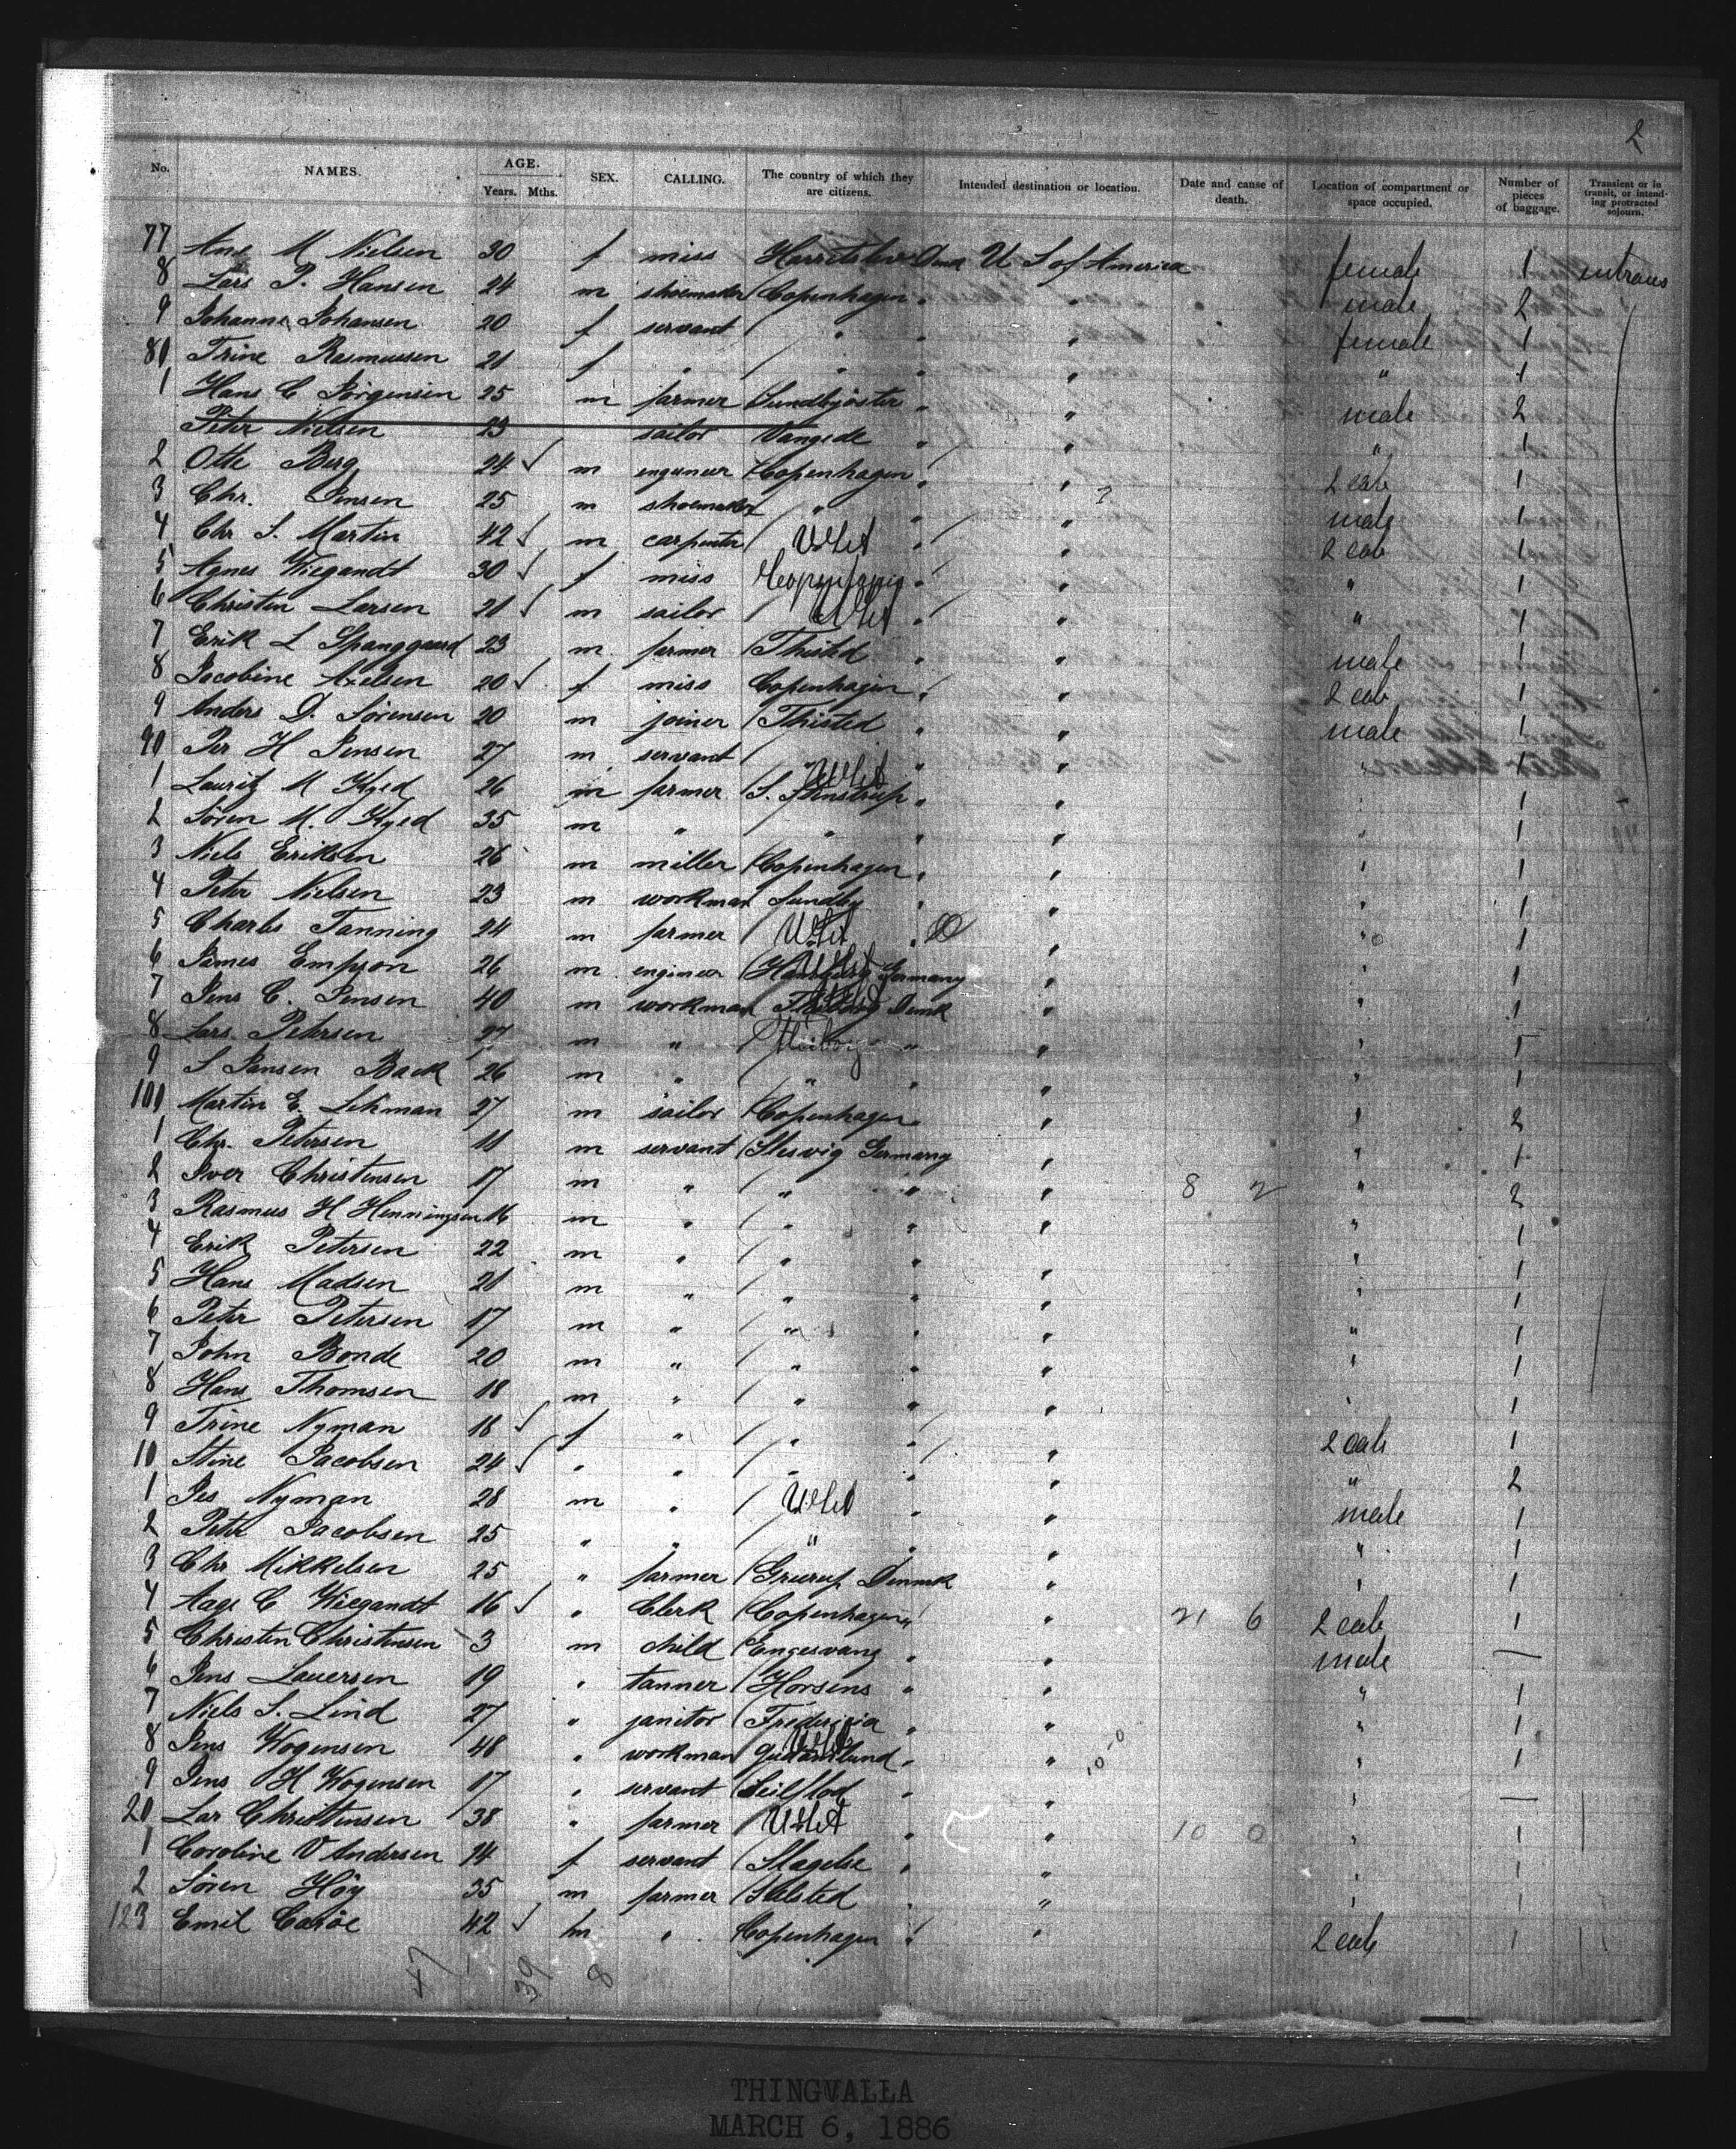 2
No. NAMES. AGE. Years. Mths. SEX. CALLING. The country of which they are citizens. Intended destination or location. Date and cause of death. Location of compartment or space occupied. Number of pieces of baggage. Transient or in transit, or intending protracted sojourn.
77 Ane M Nielsen 30 f miss Harritslev Dmk U S of America female 1 intrans
8 Lars P. Hansen 24 m shoemaker Copenhagen " " male 2
9 Johanne Johansen 20 f servant " " " female 1
80 Trine Rasmussen 21 f " " " " " 1
1 Hans C Jörgensen 25 m farmer Sundbyöster " " male 2
Peter Nielsen 23 sailor Vangede " " " 1
2 Otto Berg 24 ✓ m engineer Copenhagen " " 2 cab 1
3 Chr. Jensen 25 m shoemaker " " " male 1
4 Chr S. Martin 42 ✓ m carpenter USA " " 2 cab 1
5 Agnes Wiegandt 30 ✓ f miss Copenhagen " " " 1
6 Christen Larsen 21 ✓ m sailor USA " " " 1
7 Erik L Spanggaard 23 m farmer Thisted " " male 1
8 Jacobine Axelsen 20 ✓ f miss Copenhagen " " 2 cab 1
9 Anders D. Sörensen 20 m joiner Thisted " " male 1
90 Per H Jensen 27 m servant " " " 1
1 Lauritz M Kyed 26 m farmer S. Stenstrup " " " 1
2 Sören M. Kyed 35 m " " " " " 1
3 Niels Eriksen 26 m miller Copenhagen " " " 1
4 Peter Nielsen 23 m workman Sundby " " " 1
5 Charles Tanning 24 m farmer USA " " " 1
6 James Empson 26 m engineer Germany " " 1
7 Jens C. Jensen 40 m workman Denk " " 1
8 Lars Petersen 27 m " " " " 1
9 S Jansen Back 26 m " " " " " 1
100 Martin E. Lehman 27 m sailor Copenhagen " " " 2
1 Chr. Petersen 18 m servant Slesvig Germany " " 1
2 Iver Christensen 17 m " " " " 8 2 " 2
3 Rasmus H Henningsen 16 m " " " " " 1
4 Erik Petersen 22 m " " " " " 1
5 Hans Madsen 21 m " " " " " 1
6 Peter Petersen 17 m " " " " " 1
7 John Bonde 20 m " " " " " 1
8 Hans Thomsen 18 m " " " " " 1
9 Trine Nyman 18 ✓ f " " " " 2 cab 1
10 Stine Jacobsen 24 ✓ " " " " " " 2
1 Jes Nyman 28 m " USA " " male 1
2 Peter Jacobsen 25 " " " " " " 1
3 Chr Mikkelsen 25 " farmer Denmk " " 1
4 Aage C Wiegandt 16 ✓ " Clerk Copenhagen " " 21 6 2 cab 1
5 Christen Christensen 3 m child Engesvang " " male —
6 Jens Lauersen 19 " tanner Horsens " " " 1
7 Niels S. Lind 27 " janitor Fredericia " " " 1
8 Jens Wogensen 48 " workman " " " 1
9 Jens H Wogensen 17 " servant Seilflod " " " —
20 Lar Christensen 38 " farmer USA " " 10 0 " 1
1 Caroline V Andersen 14 f servant Slagelse " " " 1
2 Sören Höy 35 m farmer Halsted " " " 1
123 Emil Caröe 42 ✓ m " Copenhagen " " 2 cab 1
47 39 8
THINGVALLA
MARCH 6, 1886